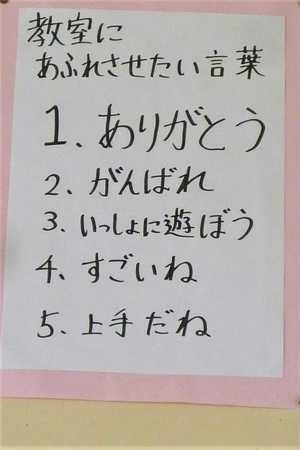 教室に
あふれさせたい言葉
1、ありがとう
2、がんばれ
3、いっしょに遊ぼう
4、すごいね
5、上手だね